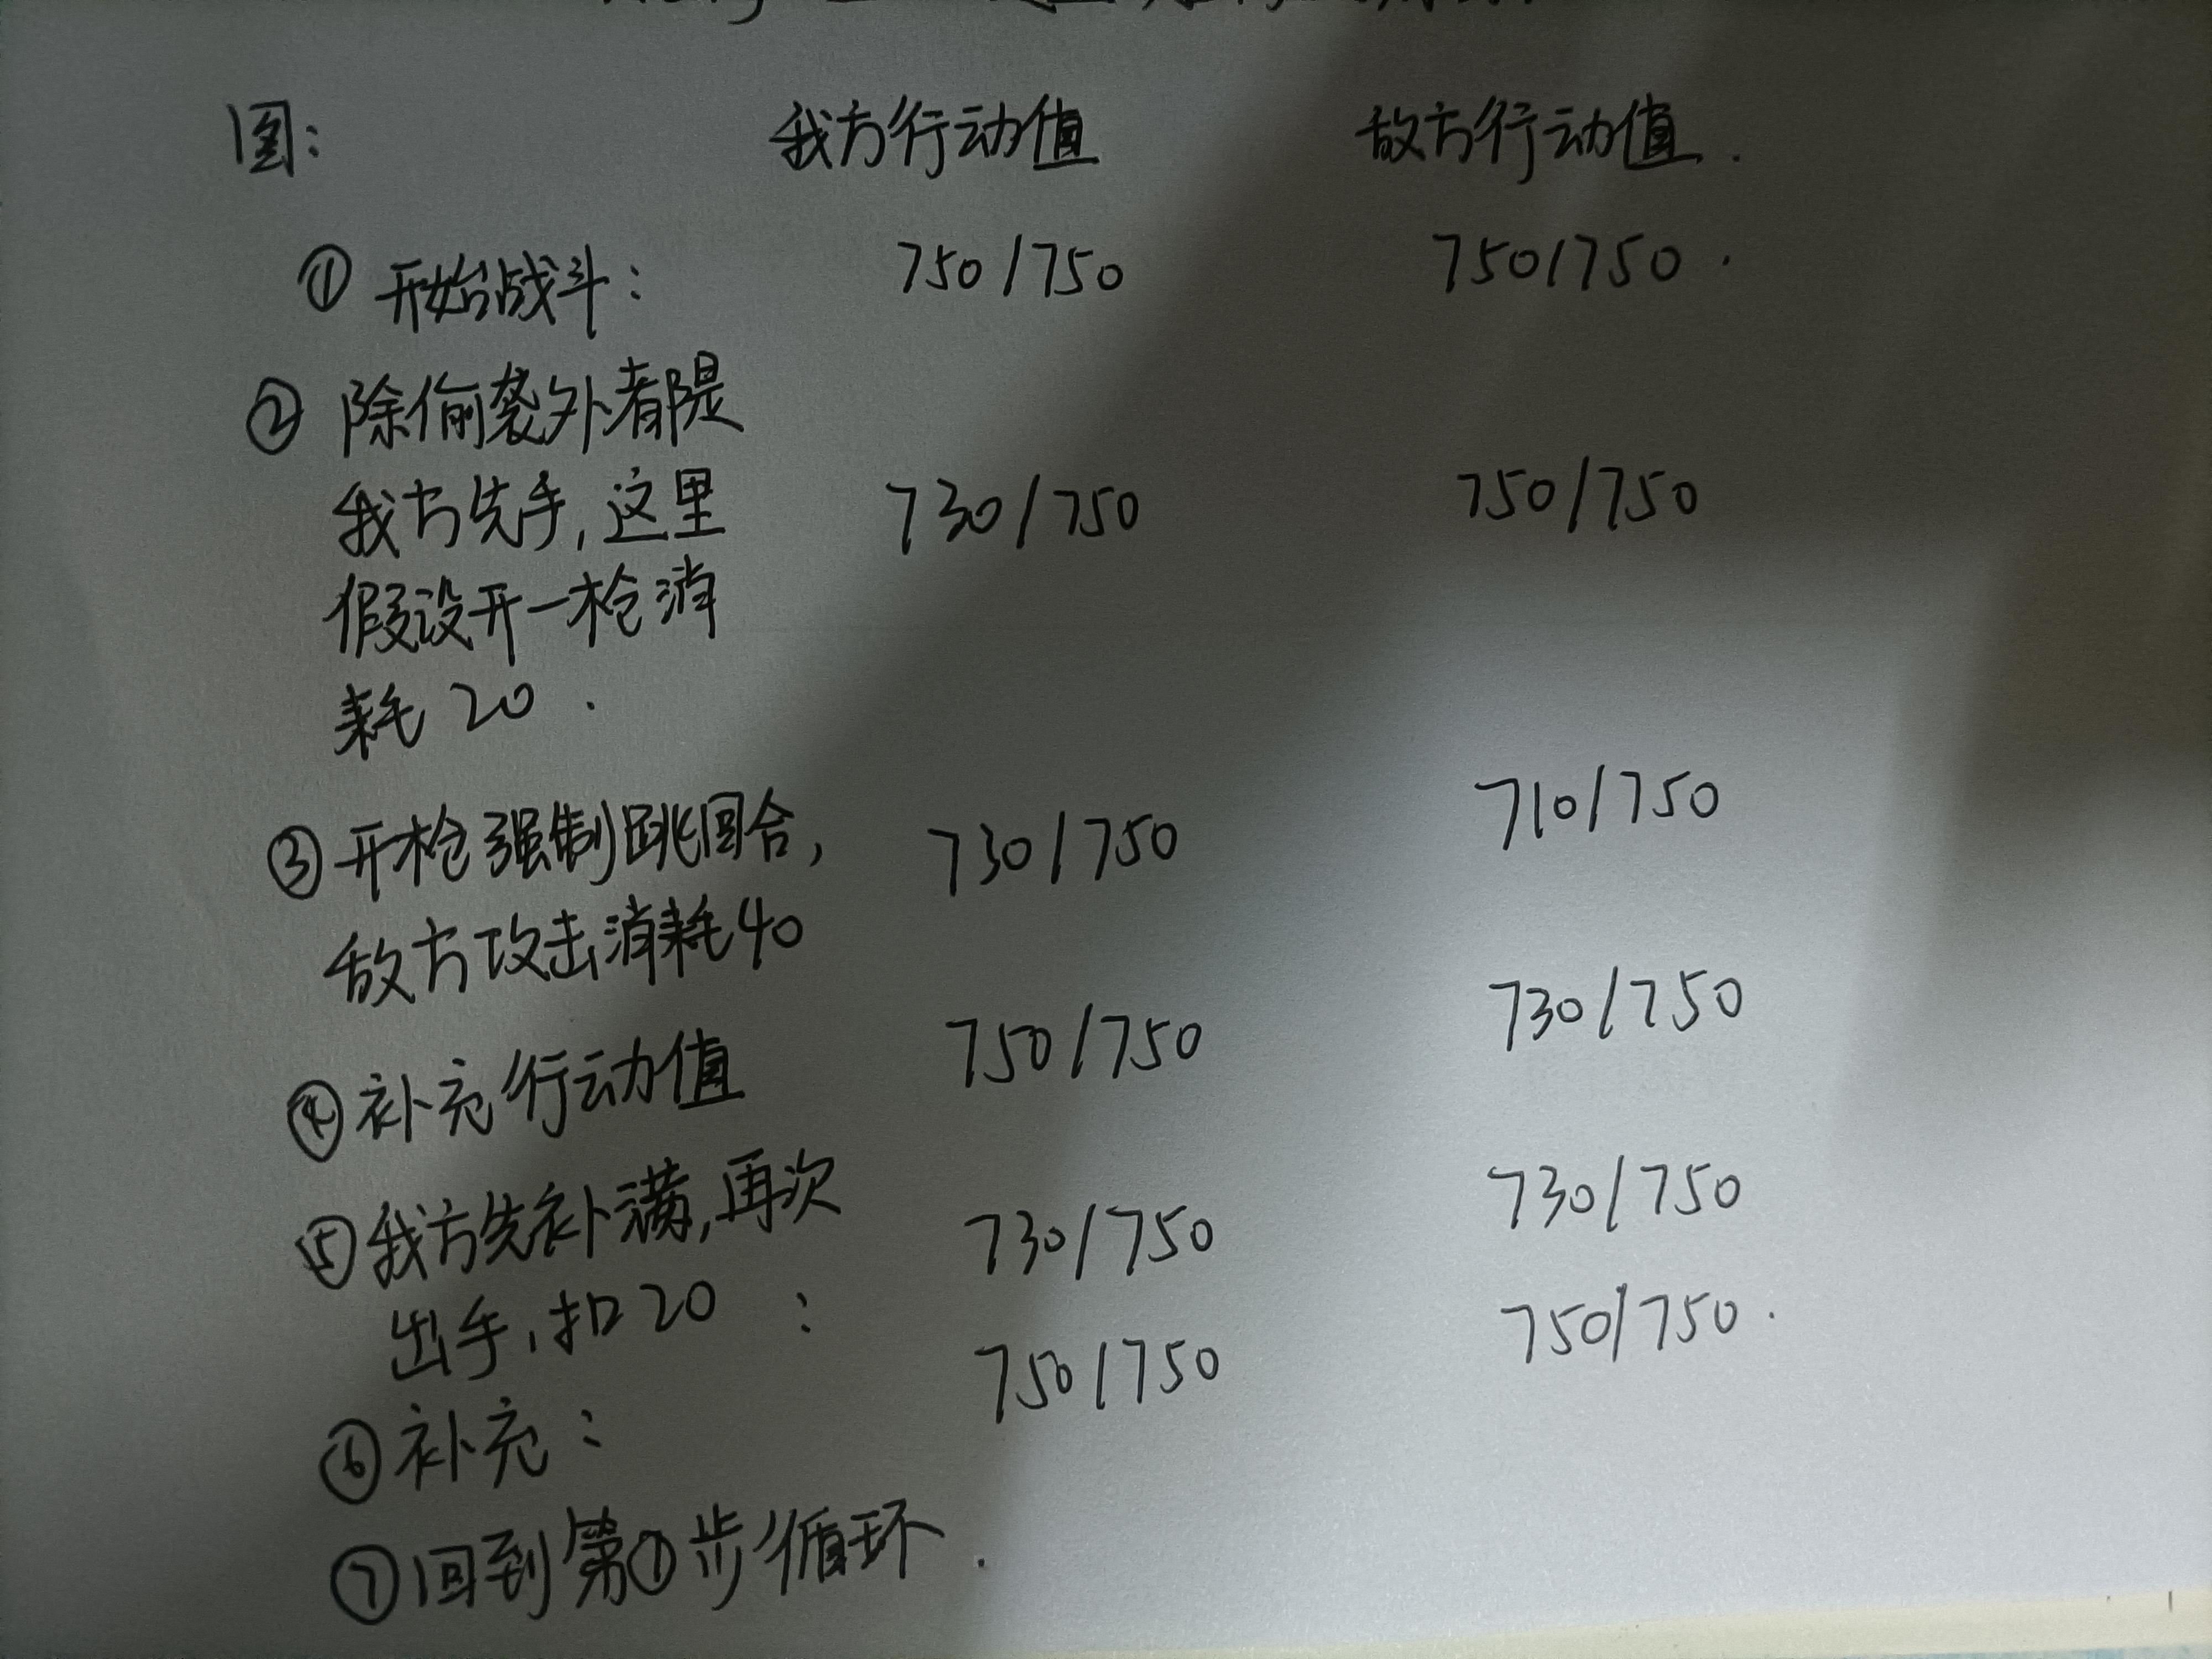 图: 我方行动值 敌方行动值.
① 开始战斗: 750/750 750/750.
② 除偷袭外都是
我方先手,这里 730/750 750/750
假设开一枪消
耗 20.
③ 开枪强制跳回合, 730/750 710/750
敌方攻击消耗40
④ 补充行动值 750/750 730/750
⑤ 我方先补满,再次 730/750 730/750
出手,扣20:
⑥ 补充: 750/750 750/750.
⑦ 回到第①步循环.